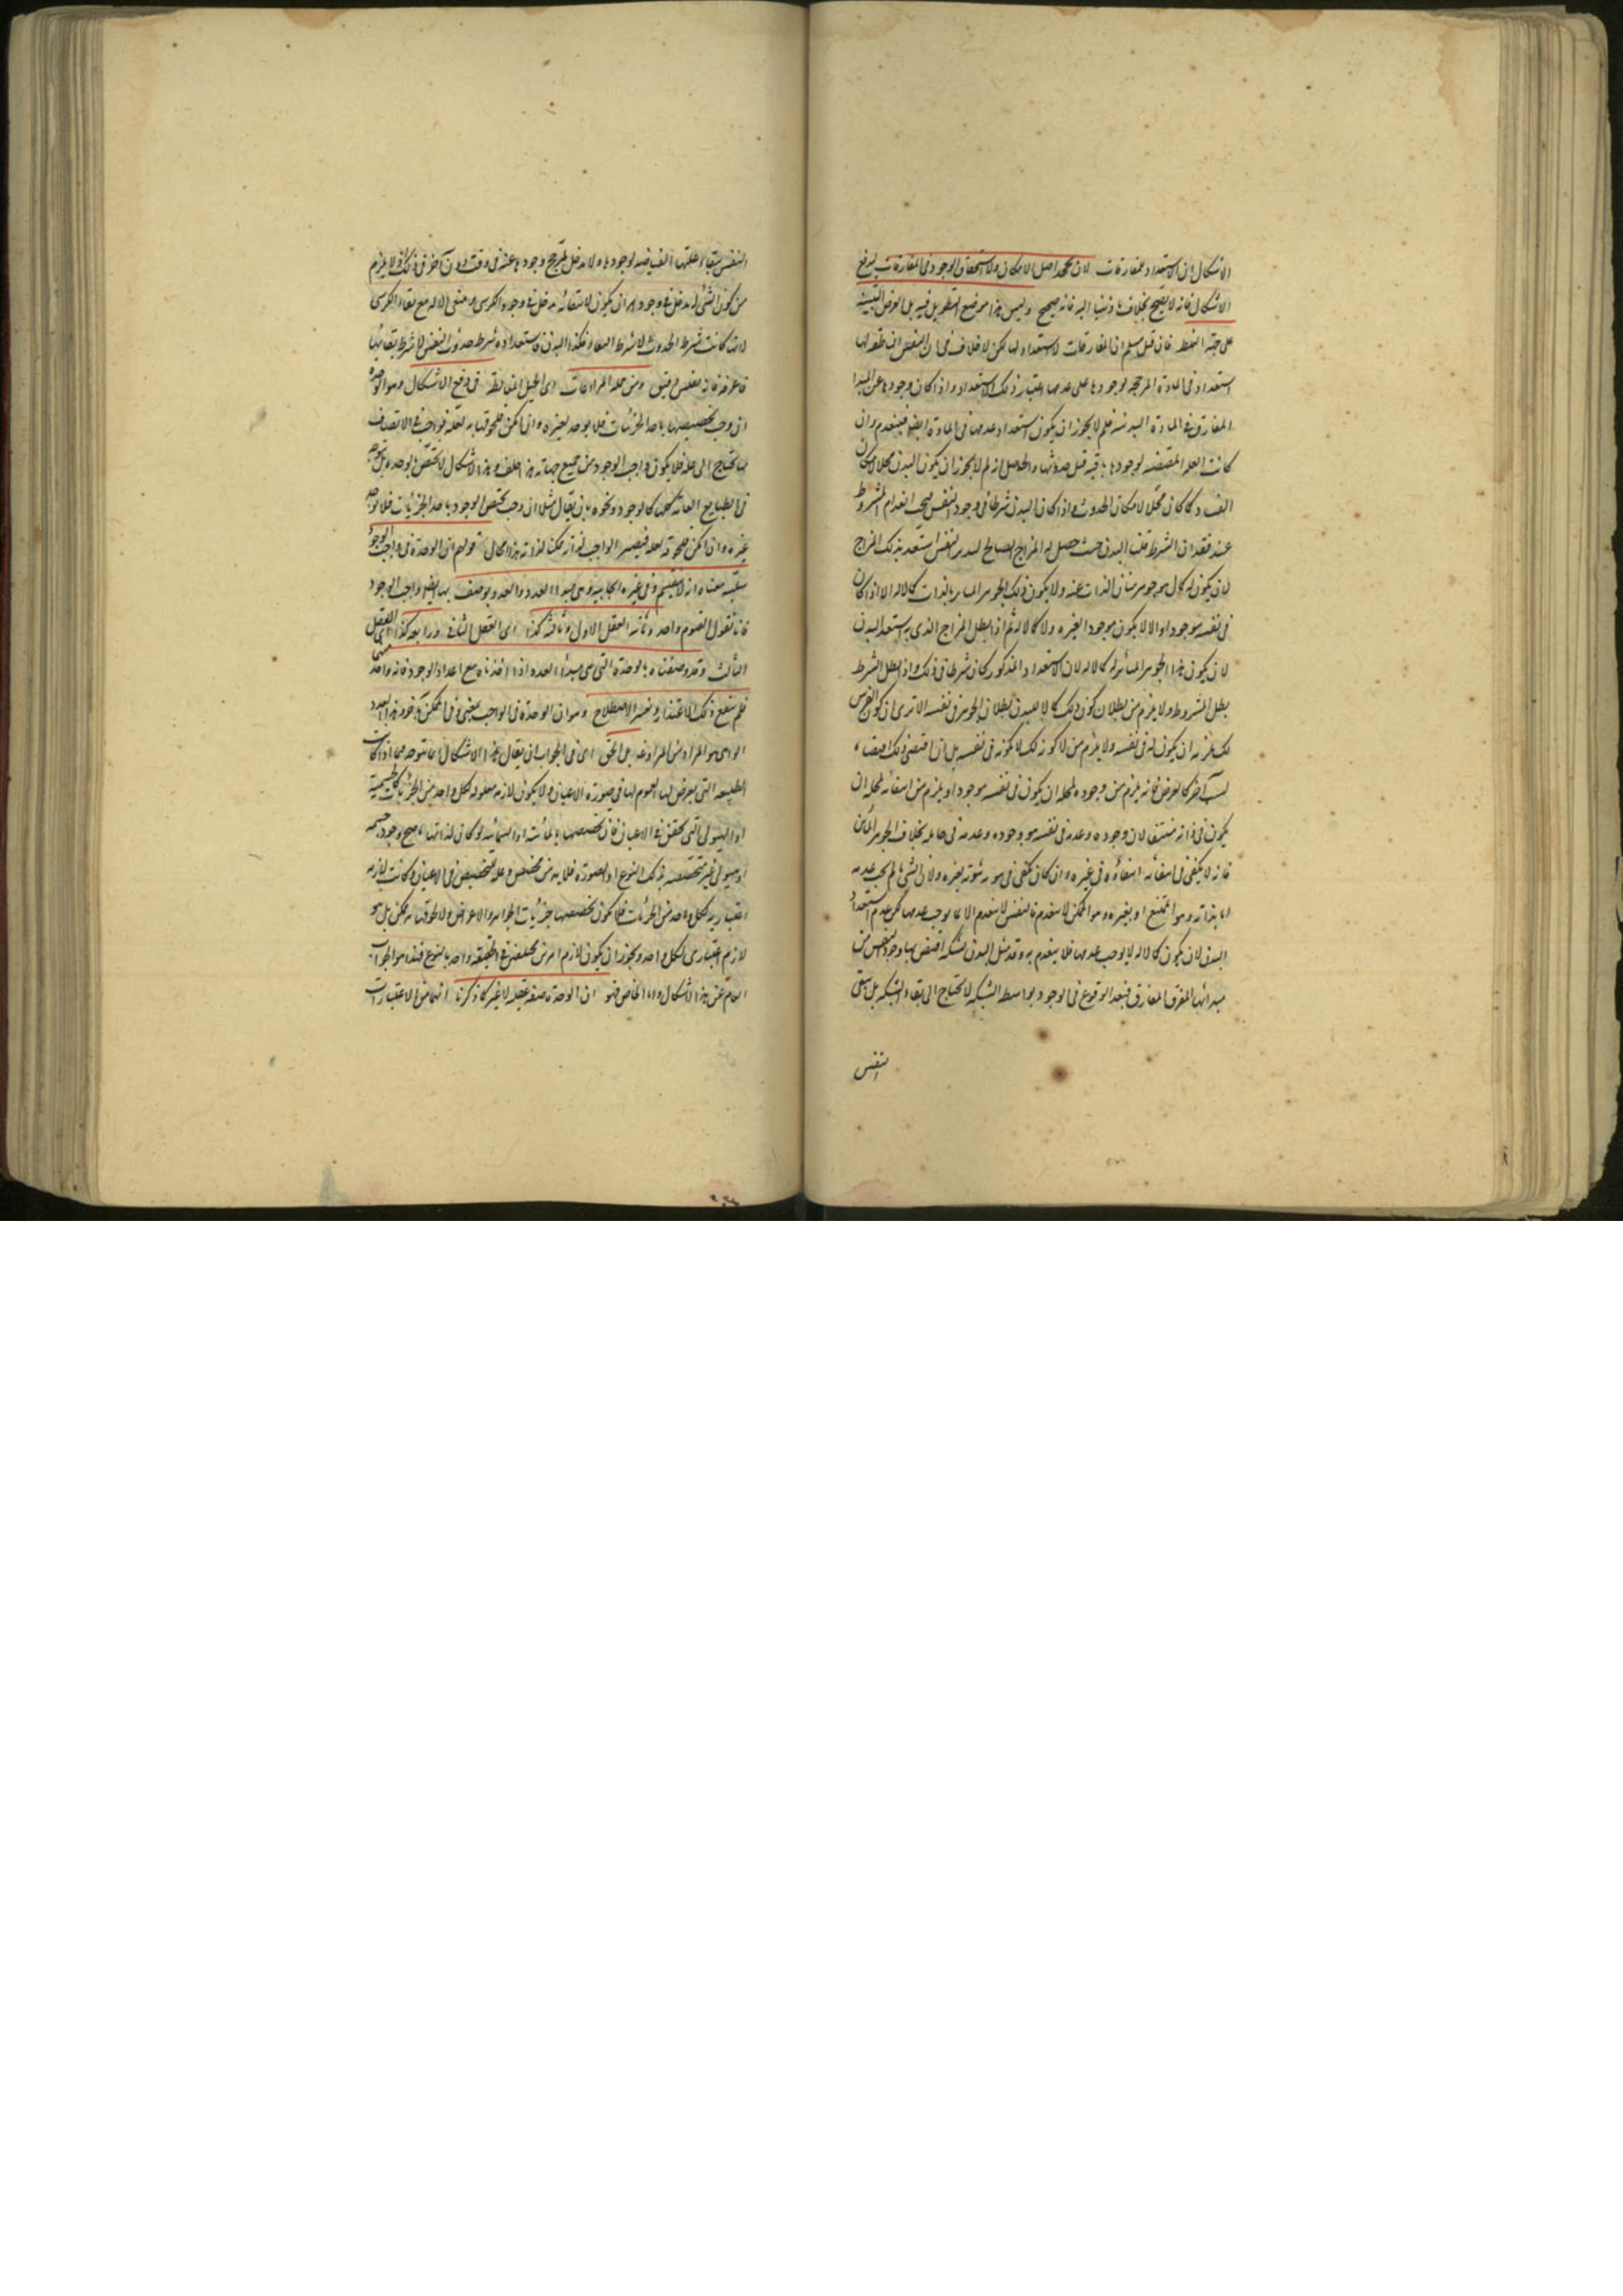 الاشكال ان الاستعداد للمفارقات لان اصل الامكان ولا استحقاق الوجود فى المفارقات ليدفع
الاشكال فانه لا يصح بخلاف ما ذهبنا اليه فانه صحيح وليس هذا موضع التطويل فيه بل الغرض التنبيه
على جهة الغلط فان قيل سلم ان المفارقات لا استعداد لها لكن لا خلاف فى ان النفس الناطقة لها
استعداد فى المادة المرجحة لوجودها على عدمها باعتبار ذلك الاستعداد واذا كان وجودها عن المبدأ
المفارق فى المادة البدنية فلم لا يجوز ان يكون استعداد عدمها فى المادة ايضا فينعدم وان
كانت العلة المقتضية لوجودها باقية قبل حدوثها والحاصل انه لم لا يجوز ان يكون البدن محلا لامكان
الفساد كما كان محلا لامكان الحدوث واذا كان البدن شرطا فى وجود النفس فيجب انعدام المشروط
عند فقدان الشرط قلنا البدن حيث حصل له المزاج الصالح لتدبير النفس استعد بذلك المزاج
لان يكون له كمال هو جوهر مباين الذات عنه ولا يكون ذلك الجوهر المباين بالذات كمالا له الا اذا كان
فى نفسه موجودا والا لا يكون موجودا لغيره ولا كمالا له ثم اذا بطل المزاج الذى به استعد البدن
لان يكون هذا الجوهر المباين له كمالا له لان الاستعداد المذكور كان شرطا فى ذلك واذا بطل الشرط
بطل المشروط ولا يلزم من بطلان كون ذلك كمالا للبدن بطلان الجوهر فى نفسه الا ترى ان كون الفرس
لك يلزمه ان يكون له فى نفسه ولا يلزم من لا كونه لك لا كونه فى نفسه بل ان اقتضى ذلك اقتضاء
لسبب آخر كالعرض فانه يلزم من وجوده لمحله ان يكون فى نفسه موجودا ويلزم من انتفائه لمحله ان
يكون فى ذاته منتفيا لان وجوده وعدمه فى نفسه هو وجوده وعدمه فى حامله بخلاف الجوهر المباين
فانه لا يكفى فى انتفائه انتفاؤه فى غيره وان كان يكفى فى ثبوته لغيره ولان الشىء ما لم يجب عدمه
اما بذاته وهو الممتنع او بغيره وهو الممكن لا ينعدم فالنفس لا ينعدم الا بما يوجب عدمها لكن عدم استعداد
البدن لان يكون كمالا له لا يوجب عدمها فلا ينعدم به وقد مثل البدن بشبكة اقتنص بها وجود النفس من
مبدائها المفارق فبعد الوقوع فى الوجود بواسطة الشبكة لا يحتاج الى بقاء الشبكة بل يبقى
النفس
النفس ببقاء علتها الفياضة لوجودها ولا مدخل لمرجح وجودها عنه فى وقت دون آخر فى ذلك ولا يلزم
من كون الشىء له مدخل فى وجود امر ان يكون لانتفائه مدخل فى وجود الكرسى ثم ينتفى الآلة مع بقاء الكرسى
لانها كانت شرط الحدوث لا شرط البقاء فكذا البدن فاستعداده شرط حدوث النفس لا شرط بقائها
فاعرفه فانه نفيس دقيق ومن جملة المراوغات اى الحيل المغالطية فى دفع الاشكال وهو ان الوحدة
ان وجب تخصيصها باحد الجزئيات فلا يوجد لغيره وان امكن فلحوقها به لعلة فواجب الاتصاف
بها يحتاج الى علة فلا يكون واجب الوجود من جميع جهاته هذا خلف وهذا الاشكال لا يختص بالوحدة بل يتوجه
فى الطبايع العامة كلها كالوجود ونحوه بان يقال مثلا ان وجب تخصص الوجود باحد الجزئيات فلا يوجد
غيره وان امكن فلحوقه لعلة فيصير الواجب لذاته ممكنا لذاته هذا محال قولهم ان الوحدة فى واجب الوجود
سلبية معناه انه لا ينقسم وفى غيره ايجابية وهى مبدأ العدد والعدد يوصف بها ايضا واجب الوجود
فانا نقول القيوم واحد وثانيه العقل الاول وثالثه كذا اى العقل الثانى ورابعه كذا اى العقل
الثالث وقد وصفناه بالوحدة التى هى مبدأ العدد اذا اخذناه مع اعداد الوجود فانه واحد منها
فلم ينفع ذلك الاعتذار وتغيير الاصطلاح وهو ان الوحدة فى الواجب بمعنى وفى الممكن بآخر وهذا العدد
الواهى هو المراد من المراوغة بل الحق اى فى الجواب ان يقال هذا الاشكال انما يتوجه مما اذا كانت
الطبيعة التى يعرض لها العموم لها فى صورة الاعيان ولا يكون لازمة معلولة لكل واحد من الجزئيات كالجسمية
او الهيولى التى تحقق فى الاعيان فان تخصيصها بالمائية او السمائية لو كان لذاتها ما صح وجود جسمية
او هيولى غير متخصصة بذلك النوع او الصورة فلا بد من مخصص وعلة لتخصيص فى الاعيان وكانت لازمة
اعتبارية لكل واحد من الجزئيات فلا يكون تخصيصها جزئيات الجواهر والاعراض ولا لحوقها به ممكن بل هو
لازم اعتبارى لكل واحد ويجوز ان يكون لازم امرين مختلفين فى الحقيقة واحد بالنوع فهذا هو الجواب
العام عن هذا الاشكال واما الخاص فهو ان الوحدة صفة عقلية لا غير كما ذكرنا انها من الاعتبارات